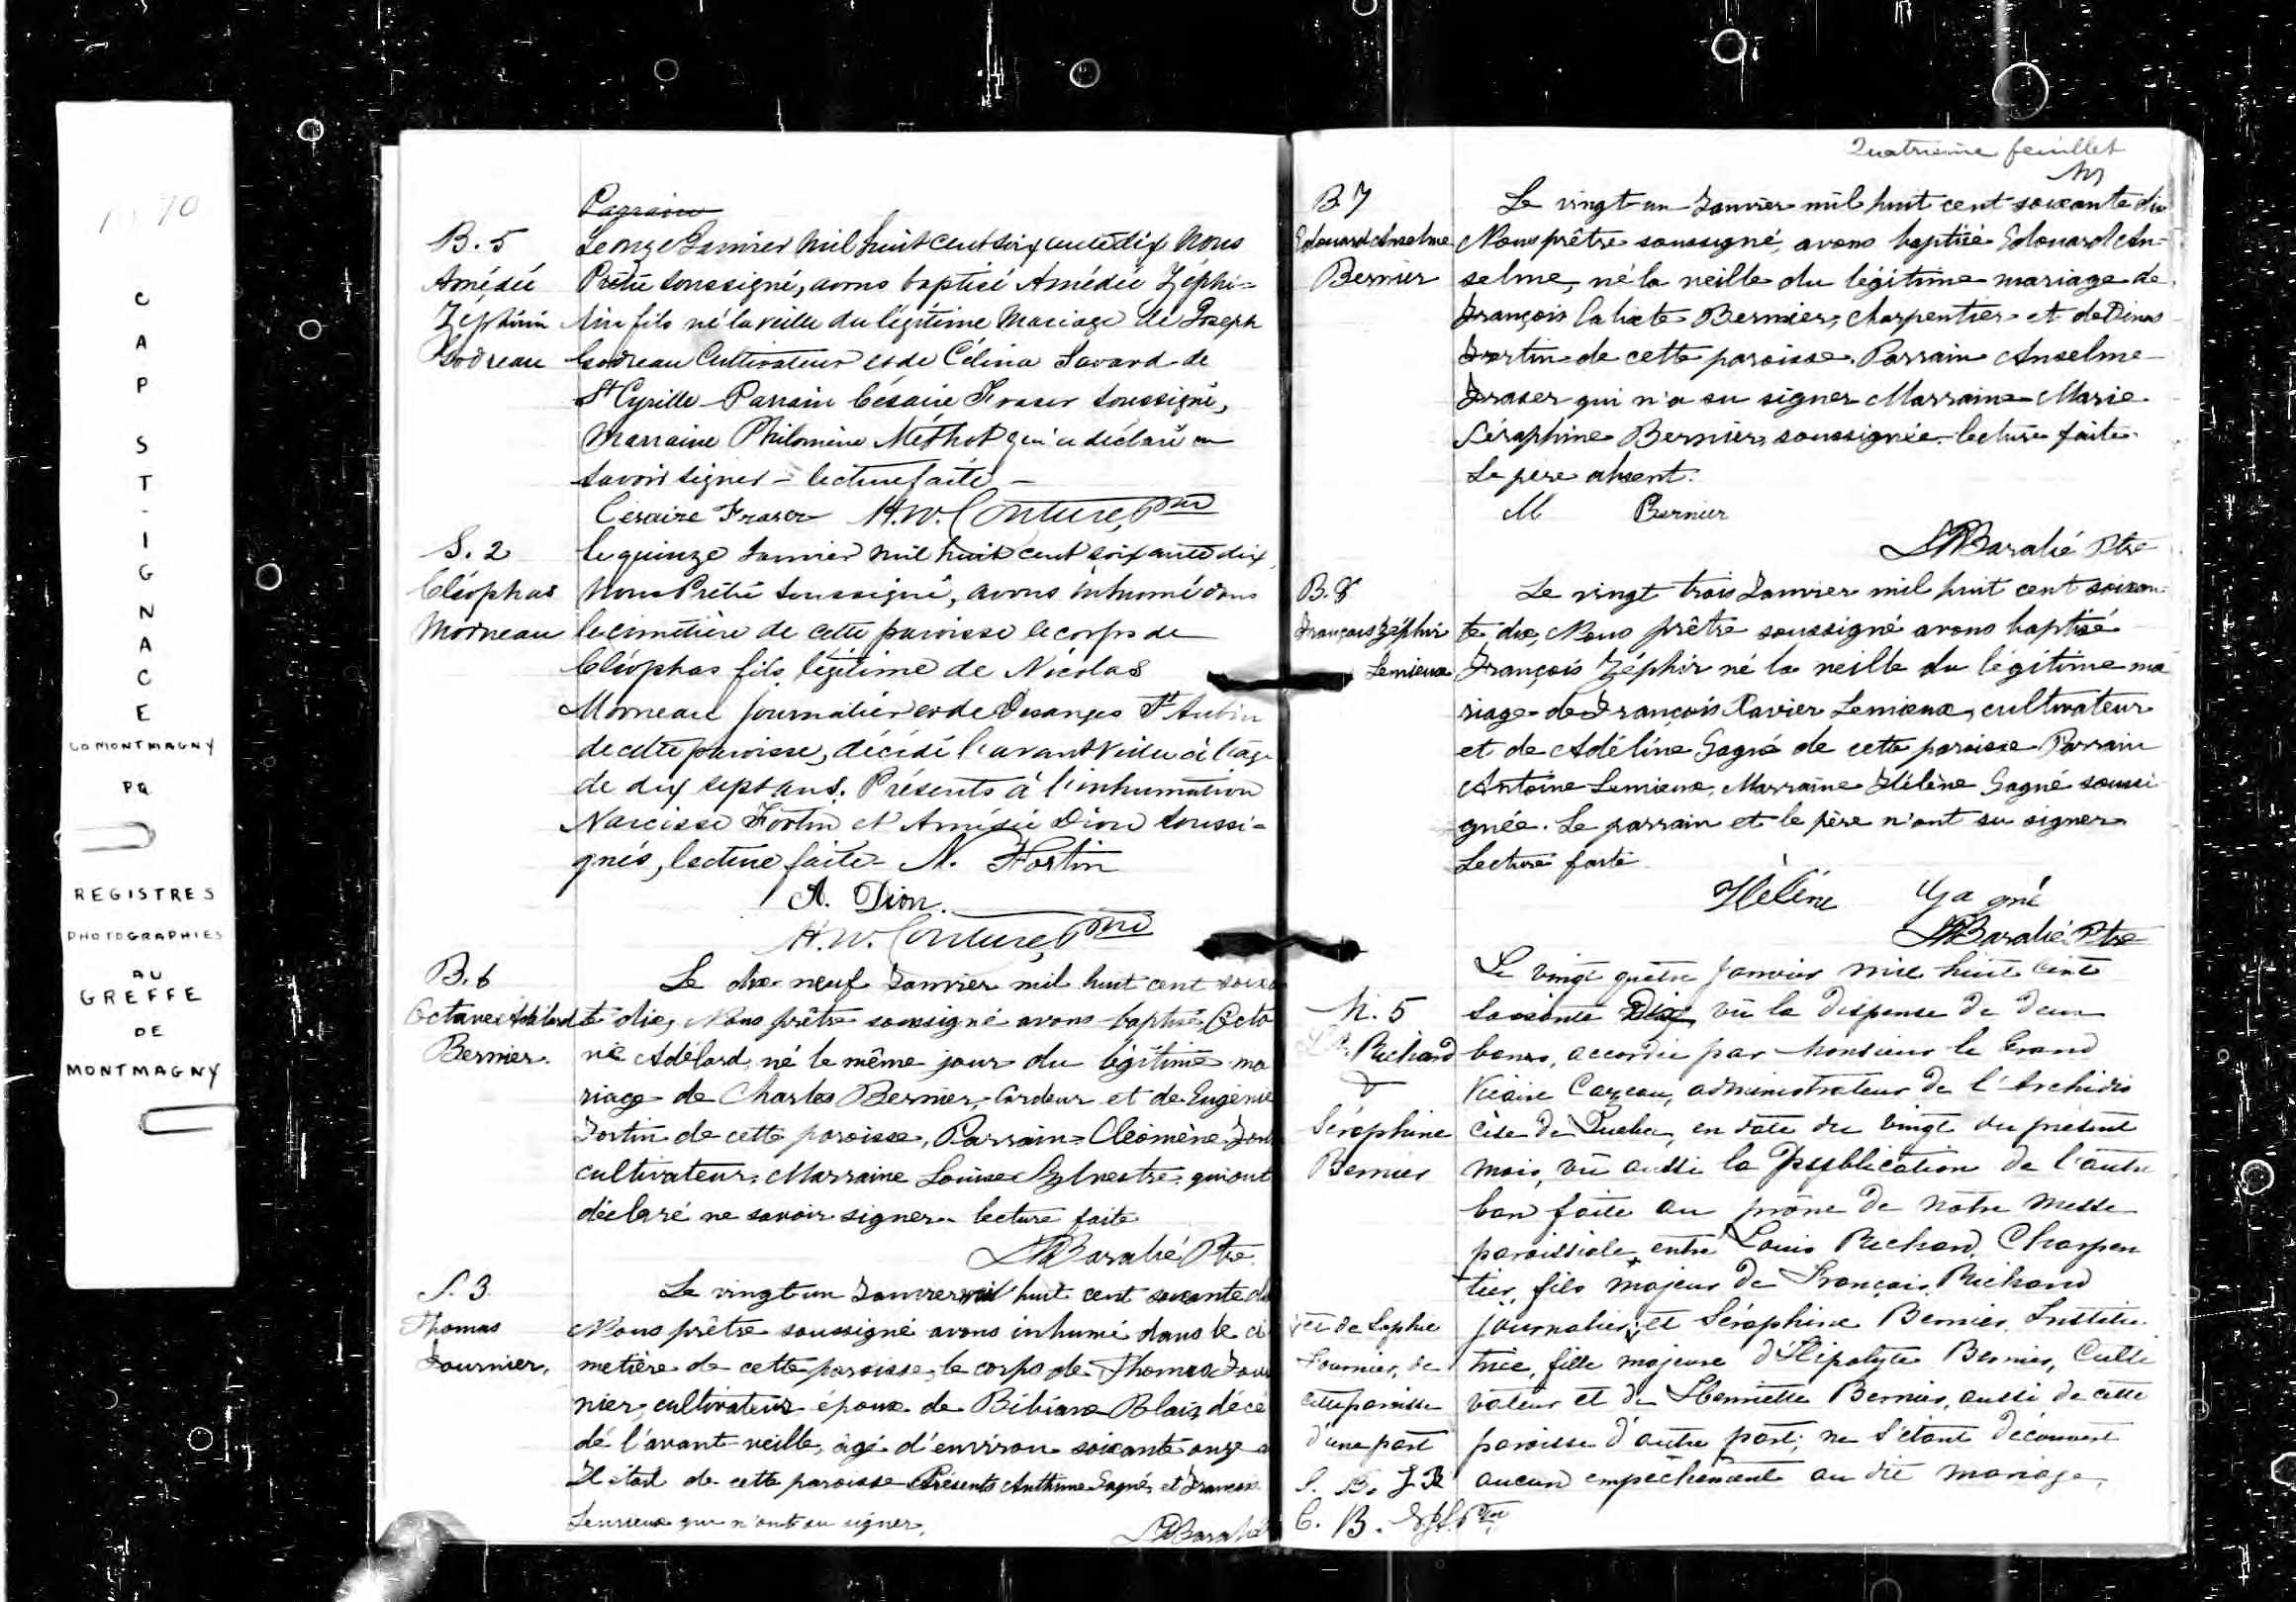 1870
C
A
P
S
T
-
I
G
N
A
C
E
CO MONTMAGNY
PQ
REGISTRES
PHOTOGRAPHIES
AU
GREFFE
DE
MONTMAGNY
Parrain
B. 5
Amédée
Zéphirin
Godreau
Le onze Janvier mil huit cent soixante dix Nous
Prêtre soussigné, avons baptisé Amédée Zéphi=
rin fils né la veille du légitime mariage de Joseph
Godreau Cultivateur et de Célina Savard de
St Cyrille Parrain Césaire Fraser soussigné,
Marraine Philomène Méthot qui a déclaré ne
savoir signer - lecture faite -
Césaire Fraser H.W. Couture, Ptre
S. 2
Cléophas
Morneau
le quinze Janvier mil huit cent soixante dix,
Nous Prêtre soussigné, avons inhumé dans
le cimetière de cette paroisse le corps de
Cléophas fils légitime de Nicolas
Morneau journalier et de Desanges St Aubin
de cette paroisse, décédé l'avant veille à l'âge
de dix sept ans. Présents à l'inhumation
Narcisse Fortin et Amédée Dion soussi=
gnés, lecture faite - N. Fortin
A. Dion.
H.W. Couture, Ptre
B. 6
Octave Adélard
Bernier.
Le dix-neuf Janvier mil huit cent soixan
te dix, Nous prêtre soussigné avons baptisé Octa
ve Adélard, né le même jour du légitime ma
riage de Charles Bernier, Cardeur et de Eugénie
Fortin de cette paroisse, Parrain Cléomène
cultivateur, Marraine Louise Sylvestre qui ont
déclaré ne savoir signer. lecture faite
Baralié Ptre
S. 3.
Thomas
Fournier.
Le vingt un Janvier mil huit cent soixante di
Nous prêtre soussigné avons inhumé dans le ci
metière de cette paroisse, le corps de Thomas Four
nier, cultivateur époux de Bibiane Blais, décé
dé l'avant-veille, âgé d'environ soixante onze a
Il était de cette paroisse Présents Anthime Gagné et François
Lemieux qui n'ont su signer.
Baralié
Quatrième feuillet
B. 7
Edouard Anselme
Bernier
Le vingt un Janvier mil huit cent soixante dix
Nous prêtre soussigné, avons baptisé Edouard An-
selme, né la veille du légitime mariage de
François Calixte Bernier, Charpentier et de Dina
Fortin de cette paroisse. Parrain Anselme
Fraser qui n'a su signer Marraine Marie
Séraphine Bernier, soussignée. lecture faite
Le père absent.
M Bernier
Baralié Ptre
B. 8
François Zéphir
Lemieux
Le vingt trois Janvier mil huit cent soixan-
te dix, Nous prêtre soussigné avons baptisé
François Zéphir né la veille du légitime ma
riage de François Xavier Lemieux, cultivateur
et de Adéline Gagné de cette paroisse Parrain
Antoine Lemieux, Marraine Hélène Gagné soussi
gnée. Le parrain et le père n'ont su signer
Lecture faite
Hélène Gagné
Baralié Ptre
M. 5
Ls. Richard
&
Séraphine
Bernier
Le vingt quatre Janvier mil huit cent
soixante Dix, vû la dispense de deux
bans, accordée par Monsieur le Grand
Vicaire Cazeau, administrateur de l'Archidio
cèse de Québec, en date du vingt du présent
mois, vû aussi la Publication de l'autre
ban faite au prône de notre messe
paroissiale, entre Louis Richard, Charpen
tier, fils majeur de François Richard
journalier, et Séraphine Bernier, Institu
trice, fille majeure d'Hipolyte Bernier, Culti
vateur et de Henriette Bernier, aussi de cette
paroisse d'autre part; ne s'étant découvert
aucun empêchement au dit mariage,
et de Sophie
Fournier, de
cette paroisse
d'une part
S. B. J. R
C. B. Ptre